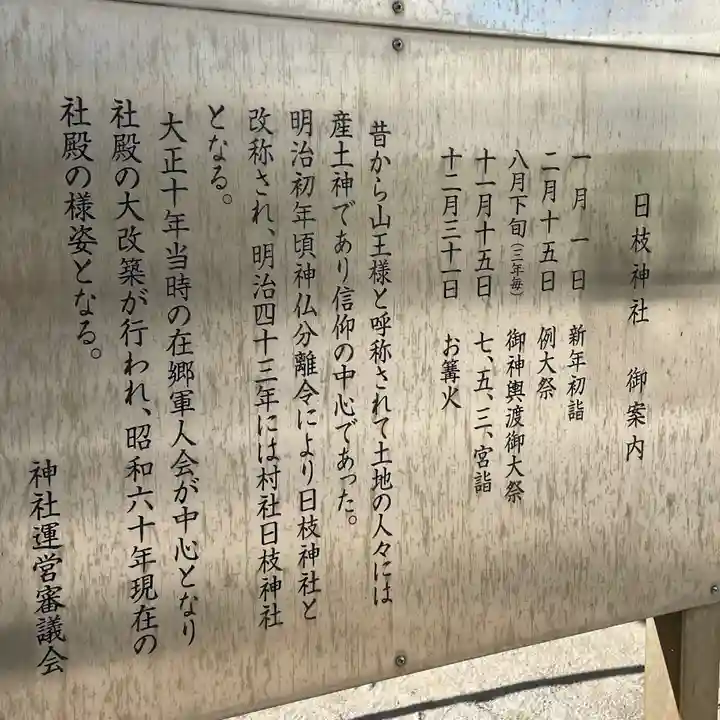 日枝神社　御案内
一月一日　新年初詣
二月十五日　例大祭
八月下旬(三年毎)　御神輿渡御大祭
十一月十五日　七、五、三、宮詣
十二月三十一日　お篝火
昔から山王様と呼称されて土地の人々には
産土神であり信仰の中心であった。
明治初年頃神仏分離令により日枝神社と
改称され、明治四十三年には村社日枝神社
となる。
大正十年当時の在郷軍人会が中心となり
社殿の大改築が行われ、昭和六十年現在の
社殿の様姿となる。
神社運営審議会